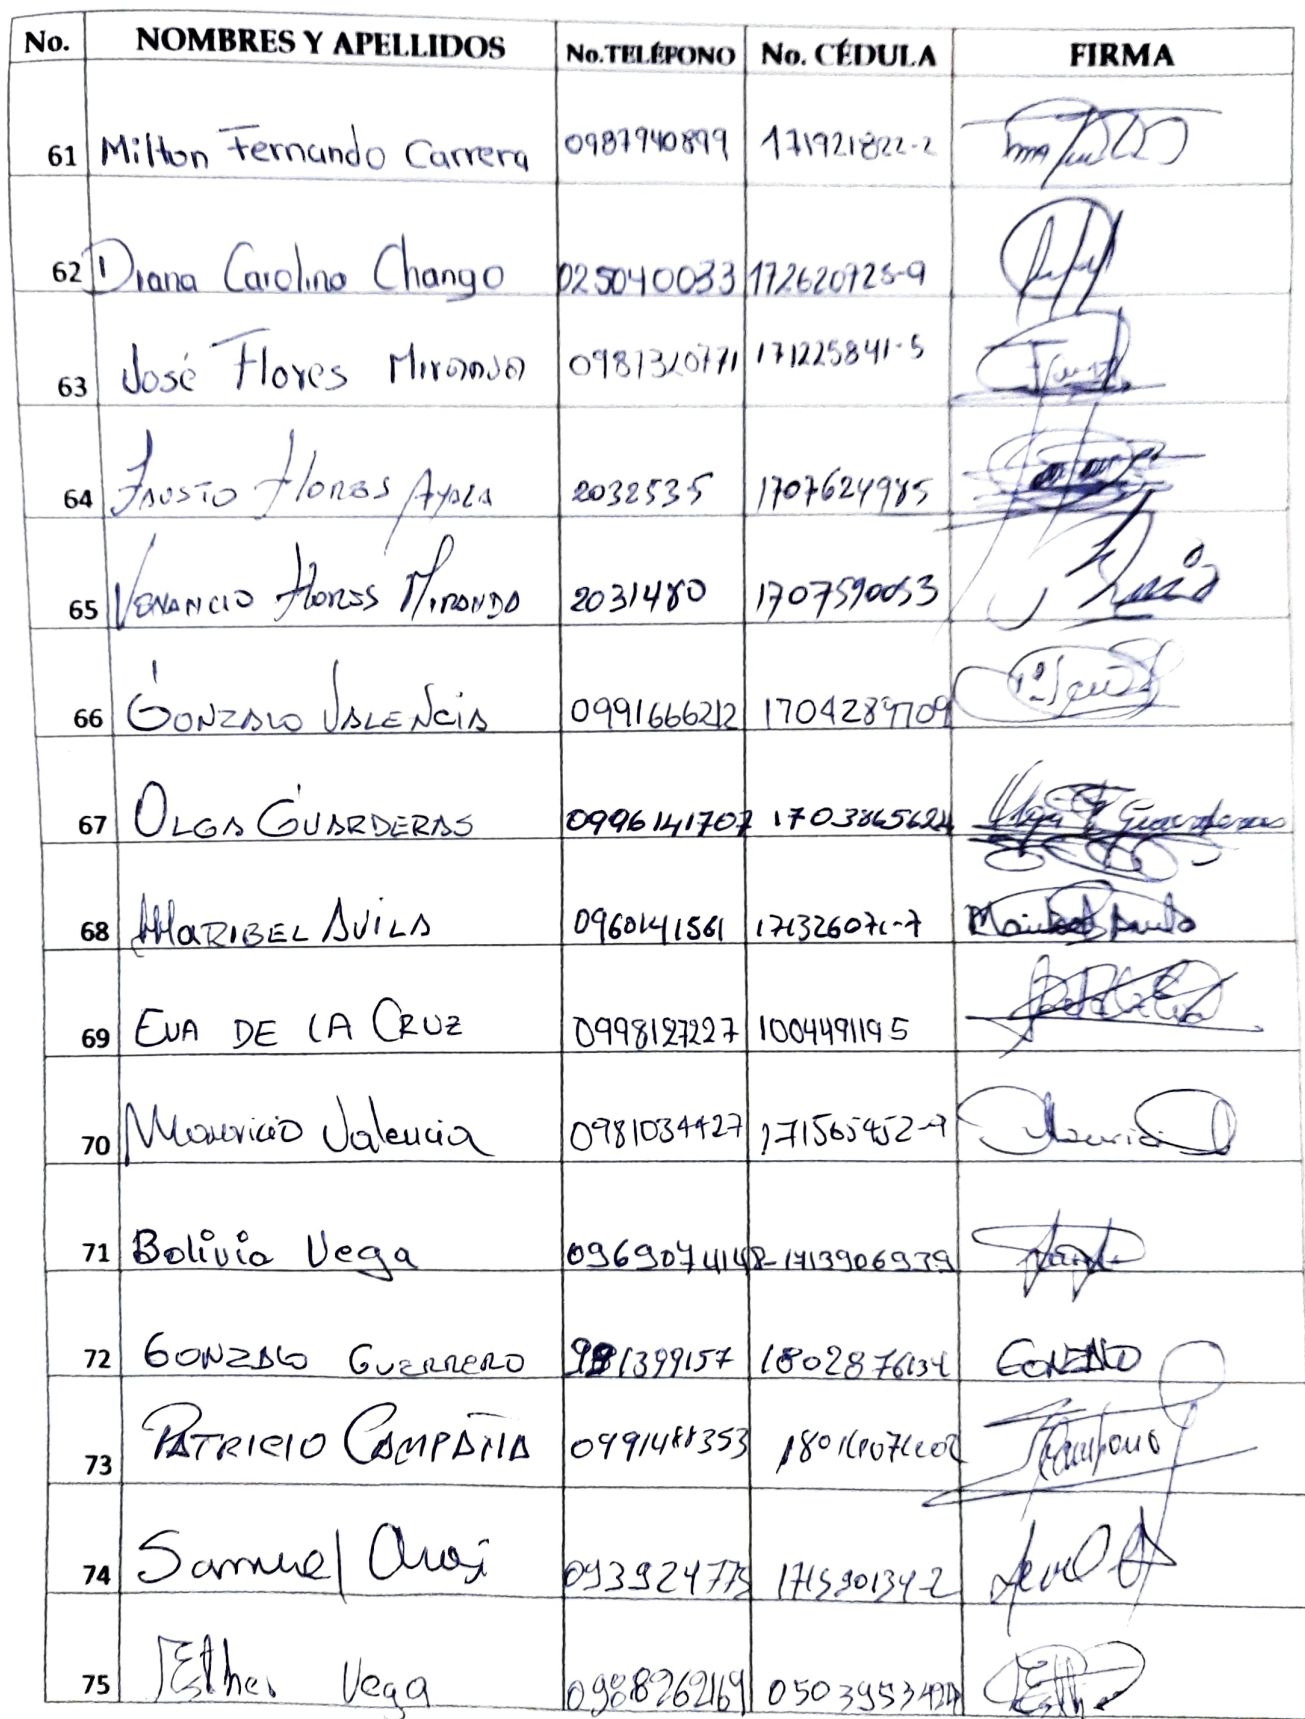 No. NOMBRES Y APELLIDOS No.TELÉFONO No. CÉDULA FIRMA
61 Milton Fernando Carrera 0987940899 171921822-2
62 Diana Carolina Chango 025040033 172620725-9
63 José Flores Miranda 0981320771 171225841-5
64 Fausto Flores Ayala 2032535 1707624985
65 Venancio Flores Miranda 2031480 1707590053
66 Gonzalo Valencia 0991666212 1704289709
67 Olga Guarderas 0996141707 1703865624 Olga Guarderas
68 Maribel Avila 0960141561 171326071-7
69 Eva DE LA CRUZ 0998127227 1004491195
70 Mauricio Valencia 0981034427 171565452-9
71 Bolivia Vega 0969074148 1713906939
72 GONZALO GUERRERO 981399157 1802876134 GONZALO
73 PATRICIO CAMPAÑA 0991488353
74 Samuel 093924775 171590134-2
75 Esther Vega 0988262169